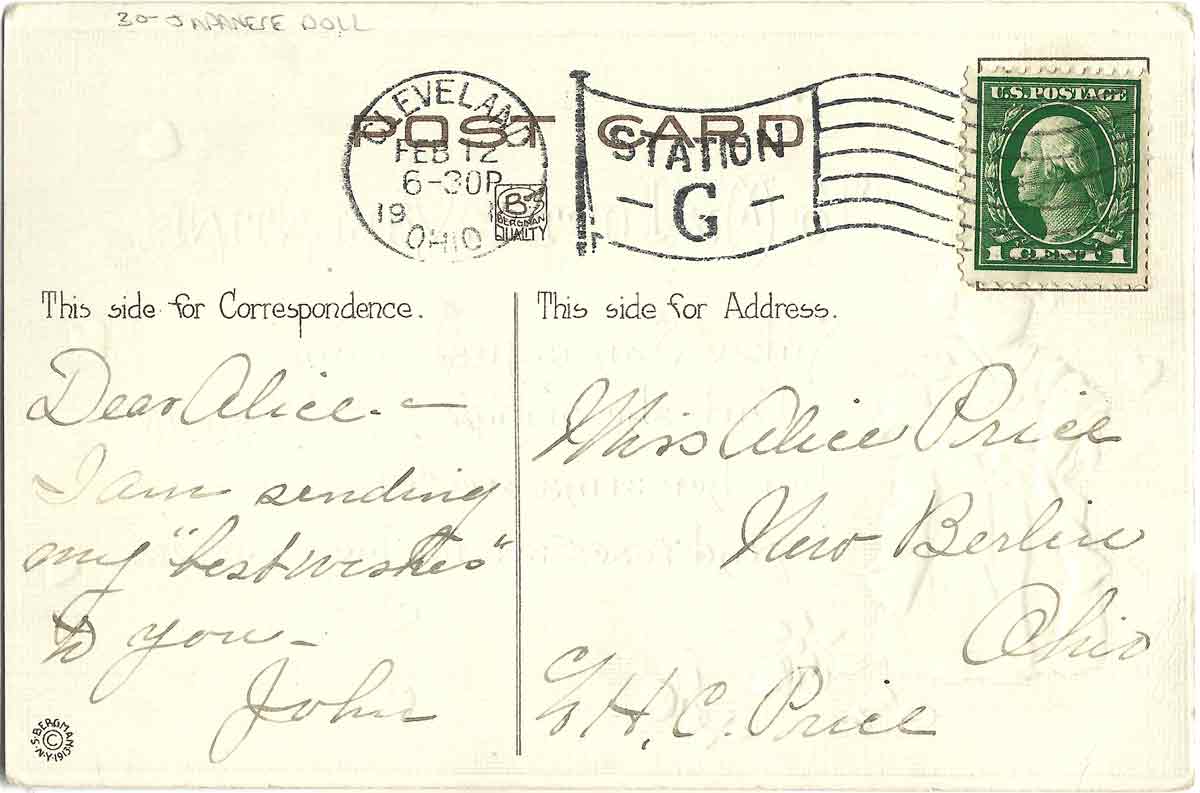 30- JAPANESE DOLL
POST CARD
CLEVELAND
FEB 12
6-30P
19
OHIO
STATION
G
B
BERGMAN
QUALITY
U.S. POSTAGE
1 CENT 1
This side for Correspondence.
Dear Alice -
I am sending
my "best wishes"
to you -
John
This side for Address.
Miss Alice Price
New Berlin
Ohio
H. C. Price
S. BERGMAN ©
N.Y. 191